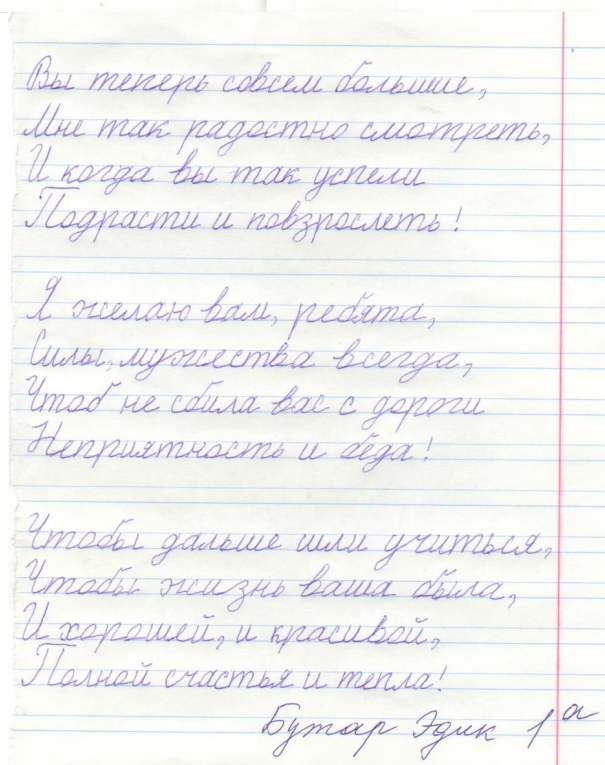 Вы теперь совсем большие,
Мне так радостно смотреть,
И когда вы так успели
Подрасти и повзрослеть!
Я желаю вам, ребята,
Силы, мужества всегда,
Чтоб не сбила вас с дороги
Неприятность и беда!
Чтобы дальше шли учиться,
Чтобы жизнь ваша была,
И хорошей, и красивой,
Полной счастья и тепла!
Бутар Эдик 1а